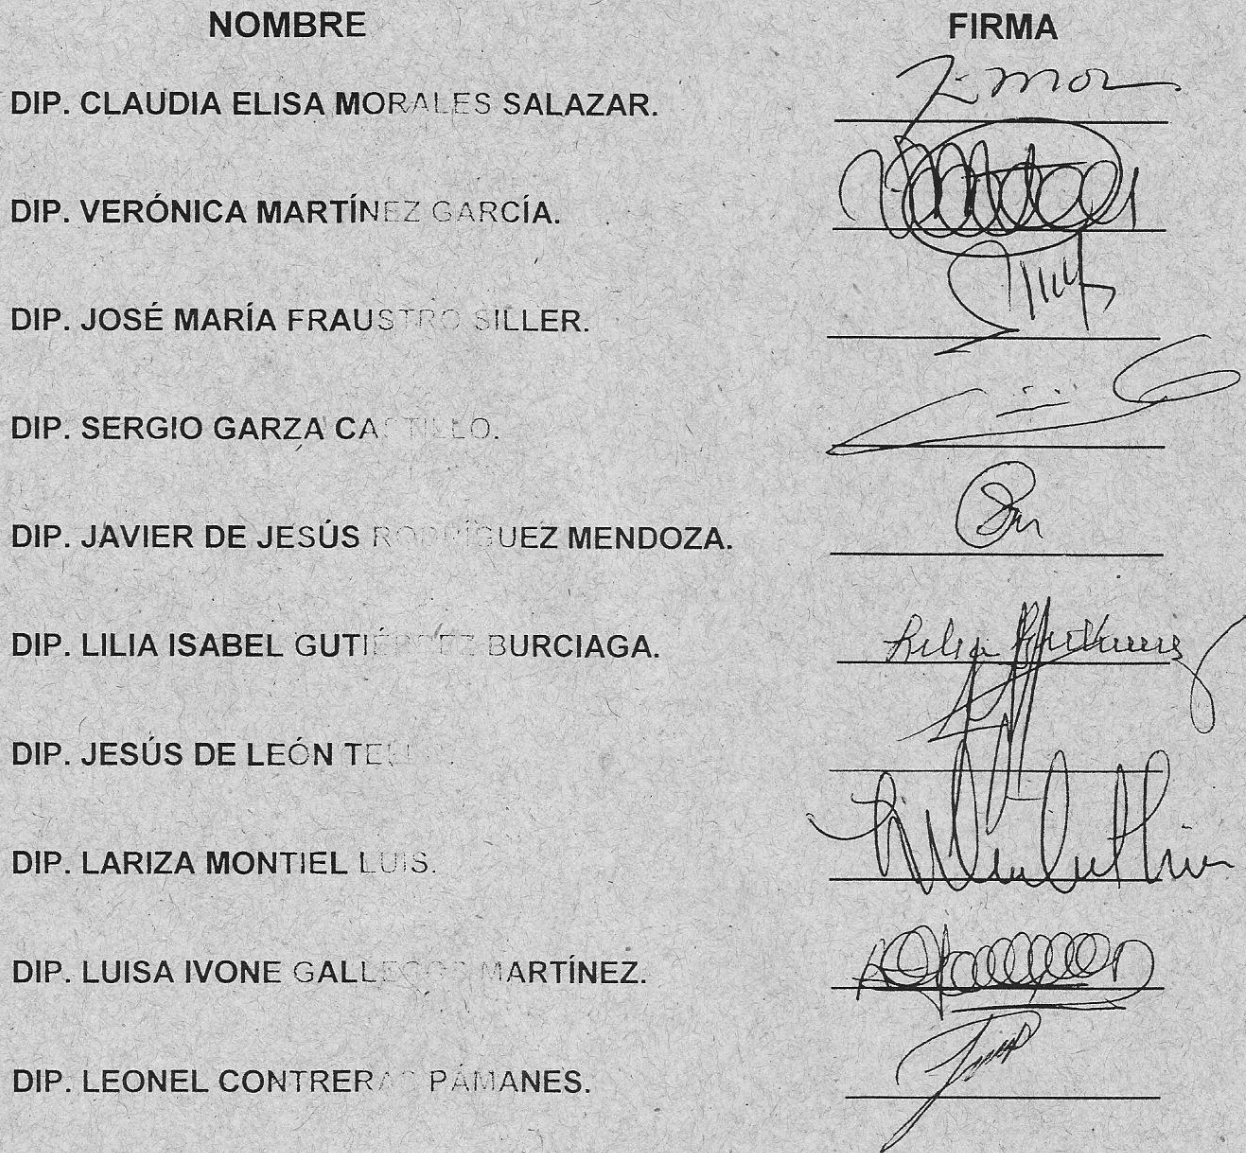 NOMBRE FIRMA
DIP. CLAUDIA ELISA MORALES SALAZAR.
DIP. VERÓNICA MARTÍNEZ GARCÍA.
DIP. JOSÉ MARÍA FRAUSTRO SILLER.
DIP. SERGIO GARZA CASTILLO.
DIP. JAVIER DE JESÚS RODRÍGUEZ MENDOZA.
DIP. LILIA ISABEL GUTIÉRREZ BURCIAGA.
Lilia
DIP. JESÚS DE LEÓN
DIP. LARIZA MONTIEL LUIS.
DIP. LUISA IVONE GALLEGOS MARTÍNEZ.
DIP. LEONEL CONTRERAS PÁMANES.